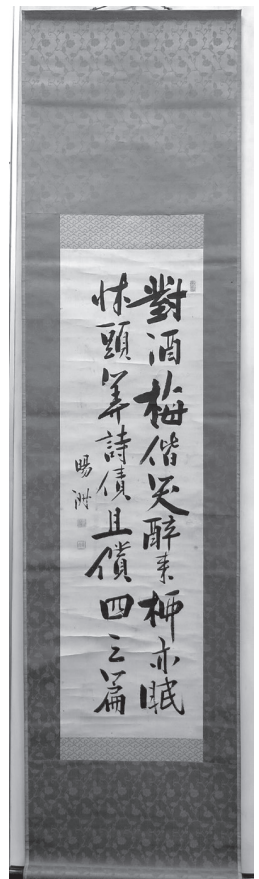 對酒梅偕笑醉来柳亦眠
牀頭算詩債且償四三篇
暘洲